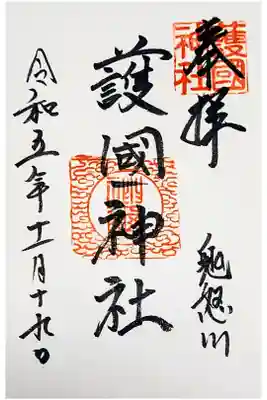 奉拝
鬼怒川
護國神社
令和五年十一月十九日
護國神社